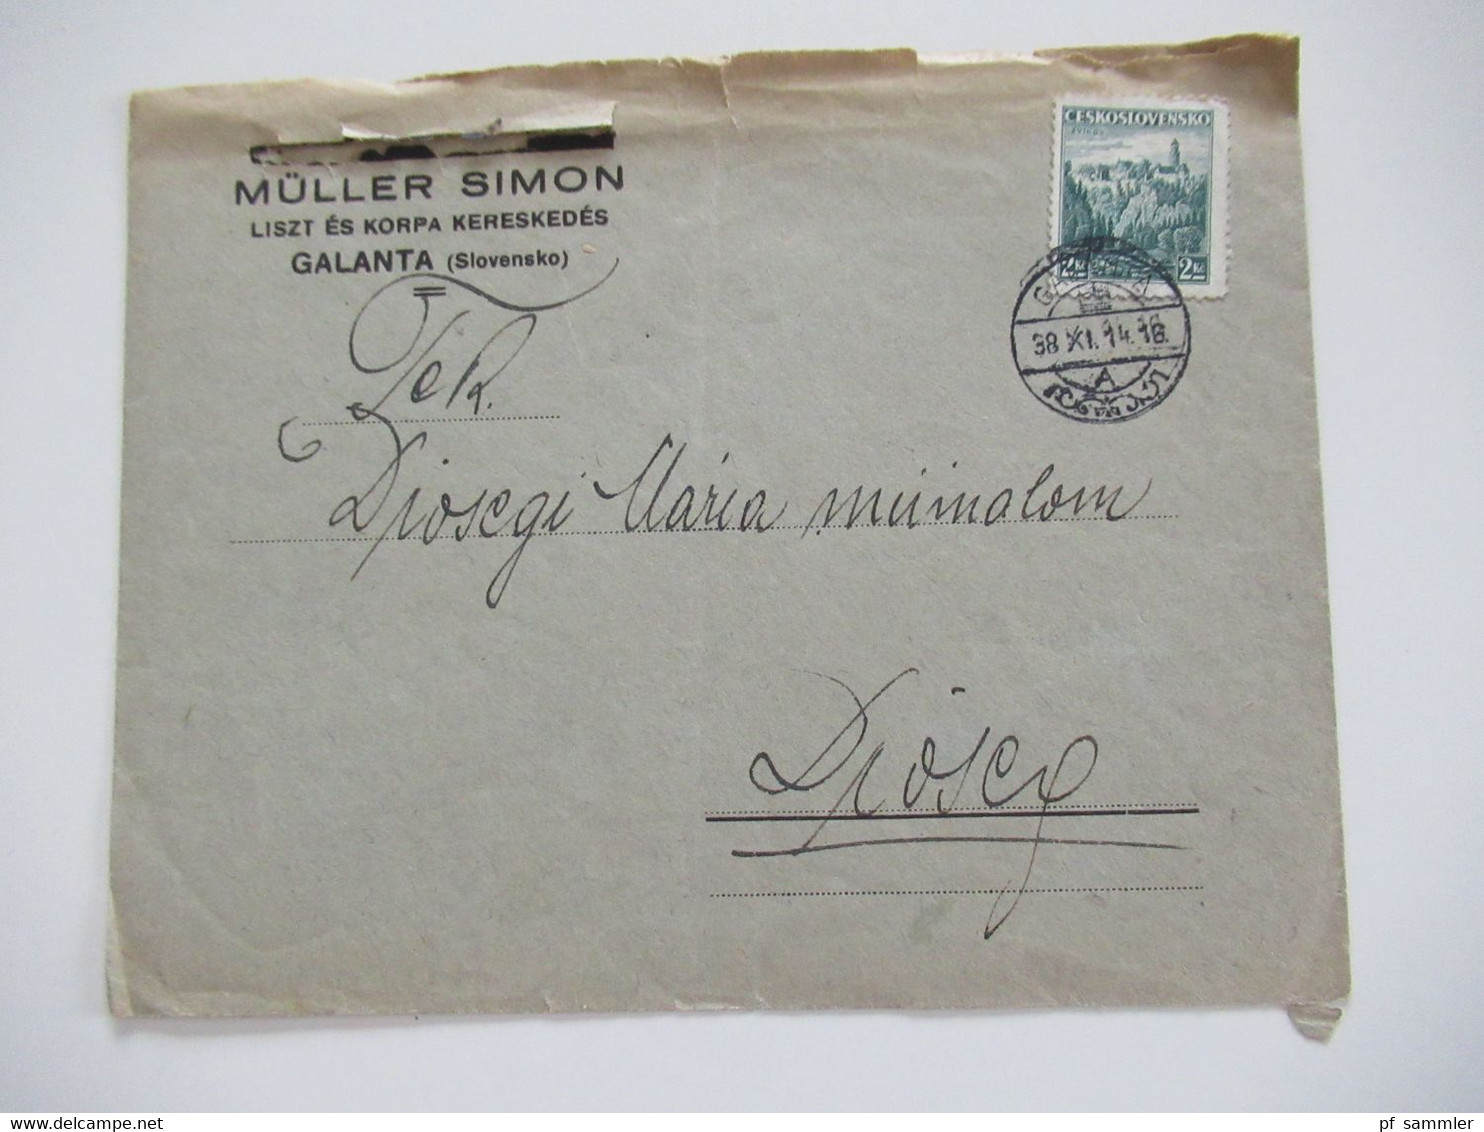 MÜLLER SIMON
LISZT ÉS KORPA KERESKEDÉS
GALANTA (Slovensko)
ČESKOSLOVENSKO
2 Kč 2 Kč
38 XI. 14. 16
A
Tek.
Diósegi Mária műmalom
Diószeg
www.delcampe.net
pf_sammler